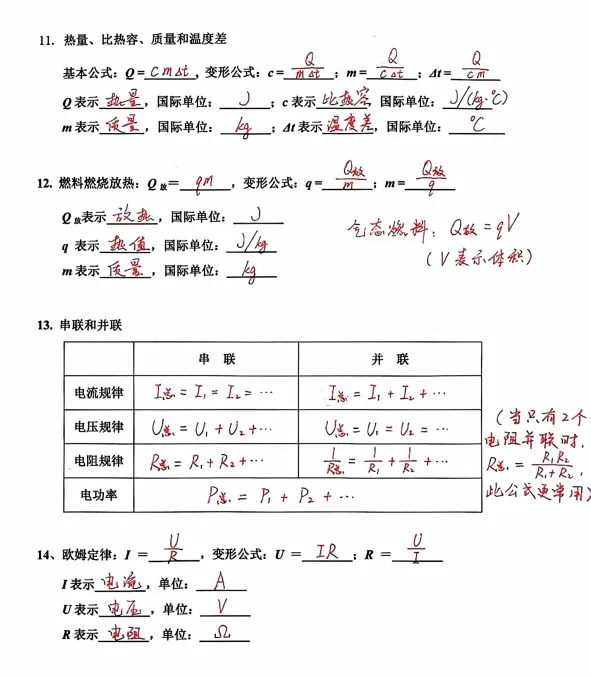 11. 热量、比热容、质量和温度差
基本公式：Q= cmΔt ，变形公式：c= Q/mΔt ；m= Q/cΔt ；Δt= Q/cm
Q 表示 热量 ，国际单位： J ；c 表示 比热容 ，国际单位： J/(kg·℃)
m 表示 质量 ，国际单位： kg ；Δt 表示 温度差 ，国际单位： ℃
12. 燃料燃烧放热：Q放= qm ，变形公式：q= Q放/m ；m= Q放/q
Q放表示 放热 ，国际单位： J
q 表示 热值 ，国际单位： J/kg
m 表示 质量 ，国际单位： kg
气态燃料：Q放=qV
(V表示体积)
13. 串联和并联
串 联 并 联
电流规律 I总=I₁=I₂=… I总=I₁+I₂+…
电压规律 U总=U₁+U₂+… U总=U₁=U₂=…
电阻规律 R总=R₁+R₂+… 1/R总=1/R₁+1/R₂+…
电功率 P总=P₁+P₂+…
(当只有2个
电阻并联时，
R总=R₁R₂/R₁+R₂，
此公式更常用)
14、欧姆定律：I = U/R ，变形公式：U = IR ；R = U/I
I 表示 电流 ，单位： A
U 表示 电压 ，单位： V
R 表示 电阻 ，单位： Ω